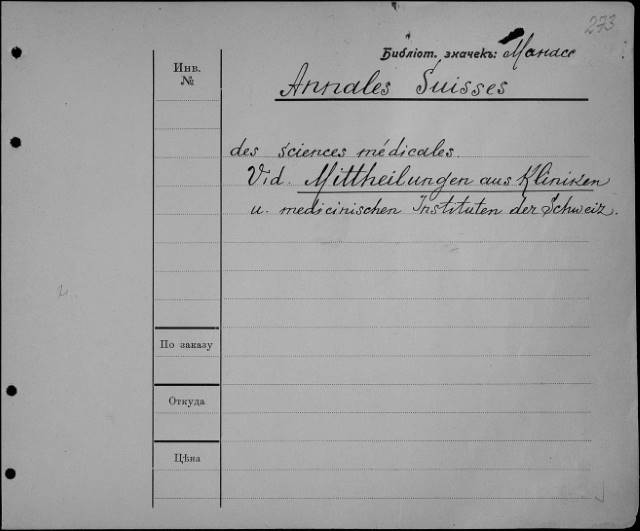 273
Библіот. значекъ:
Инв.
№
Annales Suisses
des sciences médicales.
Vid. Mittheilungen aus Kliniken
u. medicinischen Instituten der Schweiz.
По заказу
Откуда
Цѣна